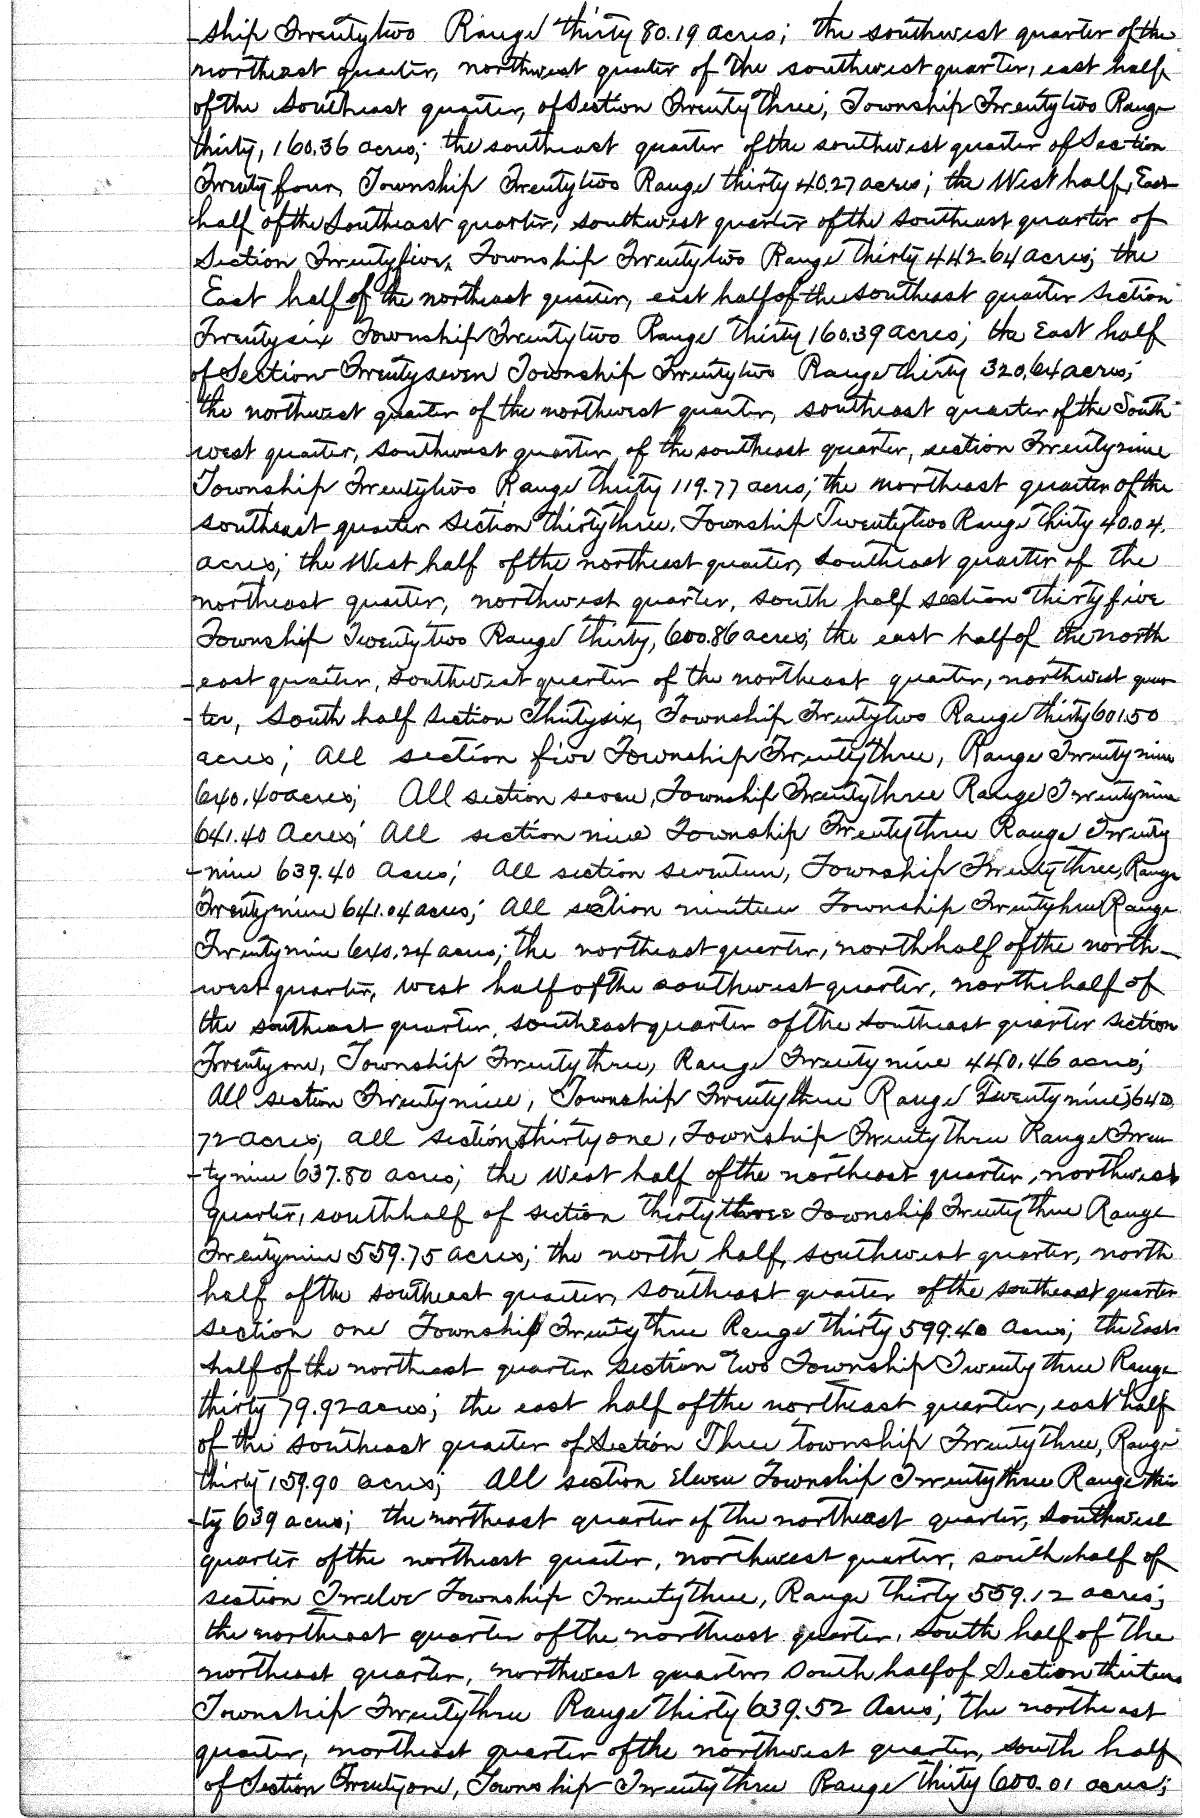 ship Twentytwo Range thirty 80.19 acres; the southwest quarter of the
northeast quarter, northwest quarter of the southwest quarter, east half
of the Southeast quarter, of Section Twenty three, Township Twentytwo Range
thirty, 160.36 acres; the southeast quarter of the southwest quarter of Section
Twenty four, Township Twentytwo Range thirty 40.27 acres; the West half, East
half of the Southeast quarter, southwest quarter of the southeast quarter of
Section Twentyfive, Township Twentytwo Range thirty 442.64 acres; the
East half of the northeast quarter, east half of the southeast quarter section
Twentysix Township Twentytwo Range thirty 160.39 acres; the East half
of Section Twentyseven Township Twentytwo Range thirty 320.64 acres;
the northwest quarter of the northwest quarter, southeast quarter of the South
west quarter, southwest quarter of the southeast quarter, section Twentynine
Township Twentytwo Range thirty 119.77 acres; the northeast quarter of the
southeast quarter section thirtythree, Township Twentytwo Range thirty 40.04.
acres; the West half of the northeast quarter, southeast quarter of the
northeast quarter, northwest quarter, south half section thirtyfive
Township Twentytwo Range thirty, 600.86 acres; the east half of the north
east quarter, southwest quarter of the northeast quarter, northwest quar
-ter, south half section Thirtysix, Township Twentytwo Range thirty 601.50
acres; all section five Township Twentythree, Range Twentynine
640.40 acres; All section seven, Township Twentythree Range Twentynine
641.40 Acres; All section nine Township Twentythree Range Twenty
-nine 639.40 Acres; All section seventeen, Township Twentythree, Range
Twentynine 641.04 acres; All section nineteen Township Twentythree Range
Twentynine 640.24 acres; the northeast quarter, north half of the north-
west quarter, west half of the southwest quarter, north half of
the southeast quarter, southeast quarter of the southeast quarter section
Twentyone, Township Twentythree, Range Twentynine 440.46 acres;
All section Twentynine, Township Twentythree Range Twentynine, 640
72 acres; all section thirtyone, Township Twentythree Range Twen
-tynine 637.80 acres; the West half of the northeast quarter, northwest
quarter, south half of section thirtythree Township Twentythree Range
Twentynine 559.75 acres; the north half, southwest quarter, north
half of the southeast quarter, southeast quarter of the southeast quarter
section one Township Twentythree Range thirty 599.40 acres; the East
half of the northeast quarter section Two Township Twenty three Range
thirty 79.92 acres; the east half of the northeast quarter, east half
of the southeast quarter of Section Three township Twentythree, Range
thirty 159.90 acres; All section Eleven Township Twentythree Range thir
-ty 639 acres; the northeast quarter of the northeast quarter, southwest
quarter of the northeast quarter, northwest quarter, south half of
section Twelve Township Twentythree, Range thirty 559.12 acres;
the northeast quarter of the northeast quarter, South half of the
northeast quarter, northwest quarter, south half of Section thirteen
Township Twentythree Range thirty 639.52 Acres; the northeast
quarter, northeast quarter of the northwest quarter, south half
of Section Twentyone, Township Twentythree Range thirty 600.01 acres;